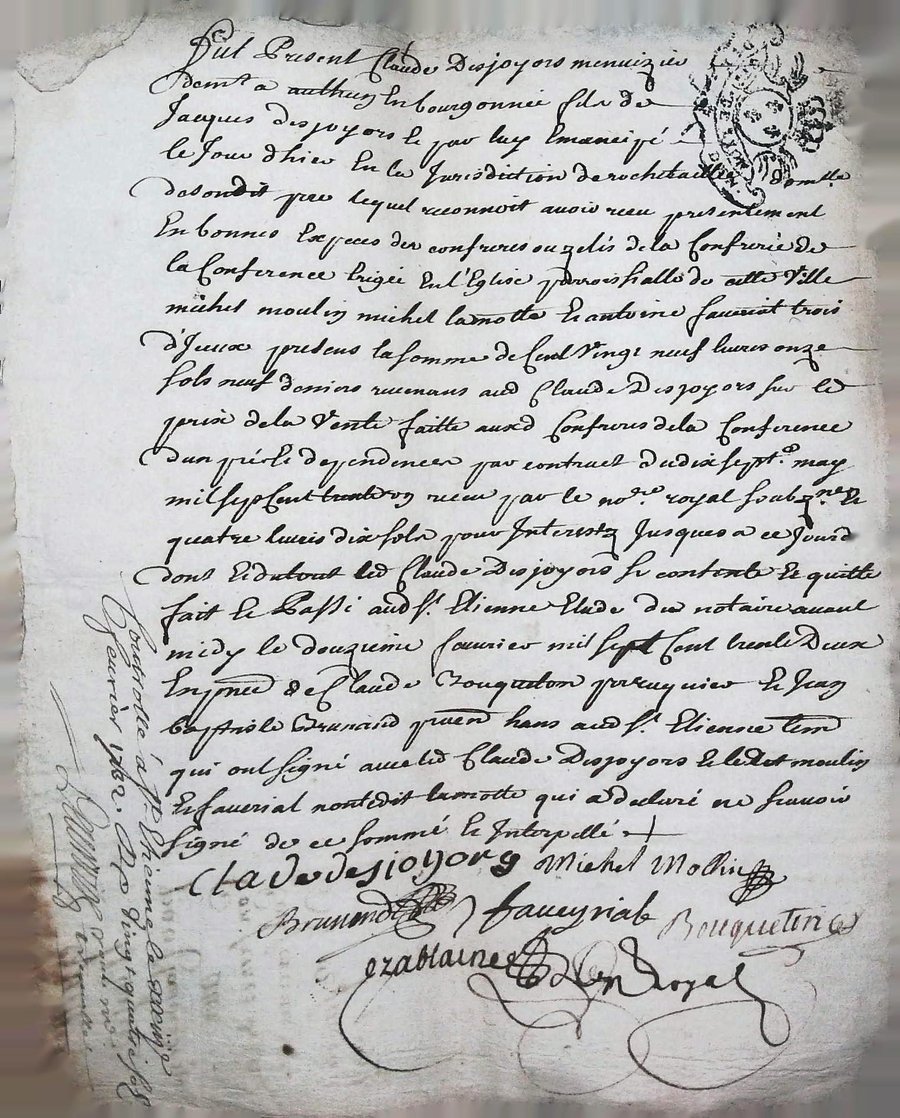 fut Present Claude Desjoyors menuizier
demt a authun En bourgonnée fils de
Jacques desjoyors Et par luy Emancipé
le Jour d'hier En la Jurisdiction de rochetaillé domlle
desondit pere lequel reconnoit avoir receu presentement
En bonnes Expeces des confreres ou zelés de la Confrerie de
la Conference Erigée En l'Eglise parroishialle de cette Ville
michel moulin michel lamotte Et antoine faveriat trois
d'Iceux presens la somme de Cent Vingt neuf livres onze
sols neuf deniers revenans aud Claude Desjoyors sur le
prix de la Vente faitte auxd Confreres de la Conference
d'un pré Et dependences par contract du dix sept.e may
mil sept Cent trente un receu par le no.re royal soubz.né Et
quatre livres dix sols pour Interestz Jusques a ce Jourd
dont Et du tout led Claude Desjoyors se contente Et quitte
fait Et Passé aud St. Etienne Etude du notaire avant
midy le douzieme fevrier mil sept Cent trente Deux
En pnce de Claude Bouqueton perruquier Et Jean
baptiste Brunand pnt hans aud St. Etienne tem
qui ont signé avec led Claude Desjoyors Et ledet moulin
Et faveriat non ledit lamotte qui a declaré ne scavoir
signé de ce sommé Et Interpellé
Clade desjoyors Michel Mollin
Brunand faveyriat Bouqueton
ezablaine royal
Controllé à St. Ethienne le
fevrier 1732. Rp Vingt quatre sols